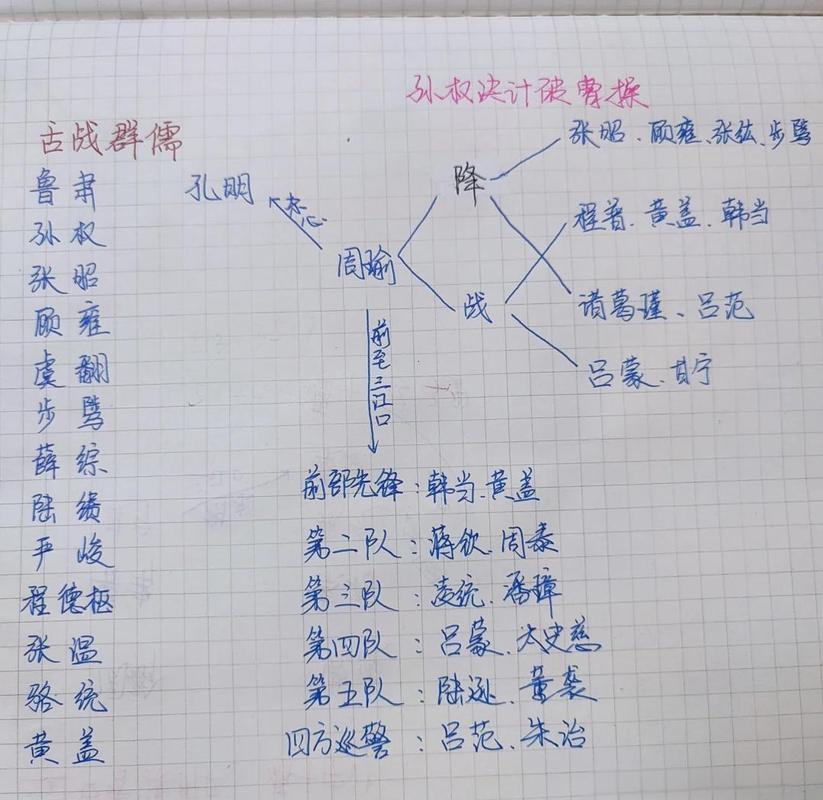 孙权决计破曹操
古战群儒
鲁肃
孙权
张昭
顾雍
虞翻
步骘
薛综
陆绩
严峻
程德枢
张温
骆统
黄盖
孔明
忌心
周瑜
降
战
张昭、顾雍、张纮、步骘
程普、黄盖、韩当
诸葛瑾、吕范
吕蒙、甘宁
前至三江口
前部先锋：韩当、黄盖
第二队：蒋钦、周泰
第三队：凌统、潘璋
第四队：吕蒙、太史慈
第五队：陆逊、董袭
四方巡警：吕范、朱治